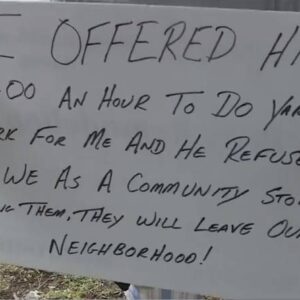 I OFFERED HI
00 AN HOUR TO DO YAR
RK FOR ME AND HE REFUSE
WE AS A COMMUNITY STO
NG THEM, THEY WILL LEAVE OU
NEIGHBORHOOD!